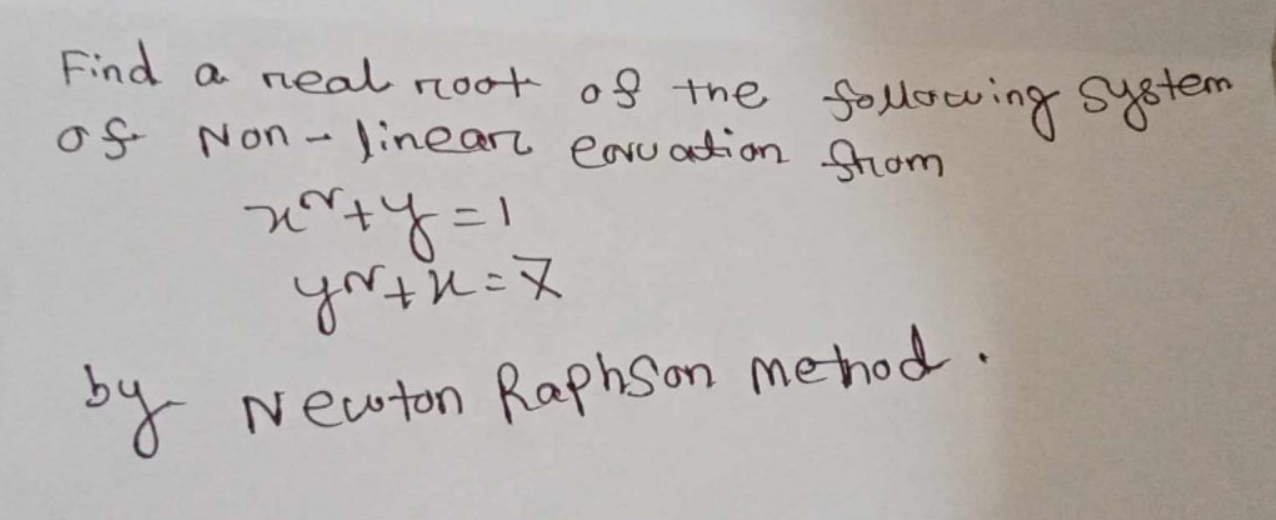 Find a real root of the following system
of Non-linear equation from
x²+y=1
y²+x=7
by Newton Raphson method.